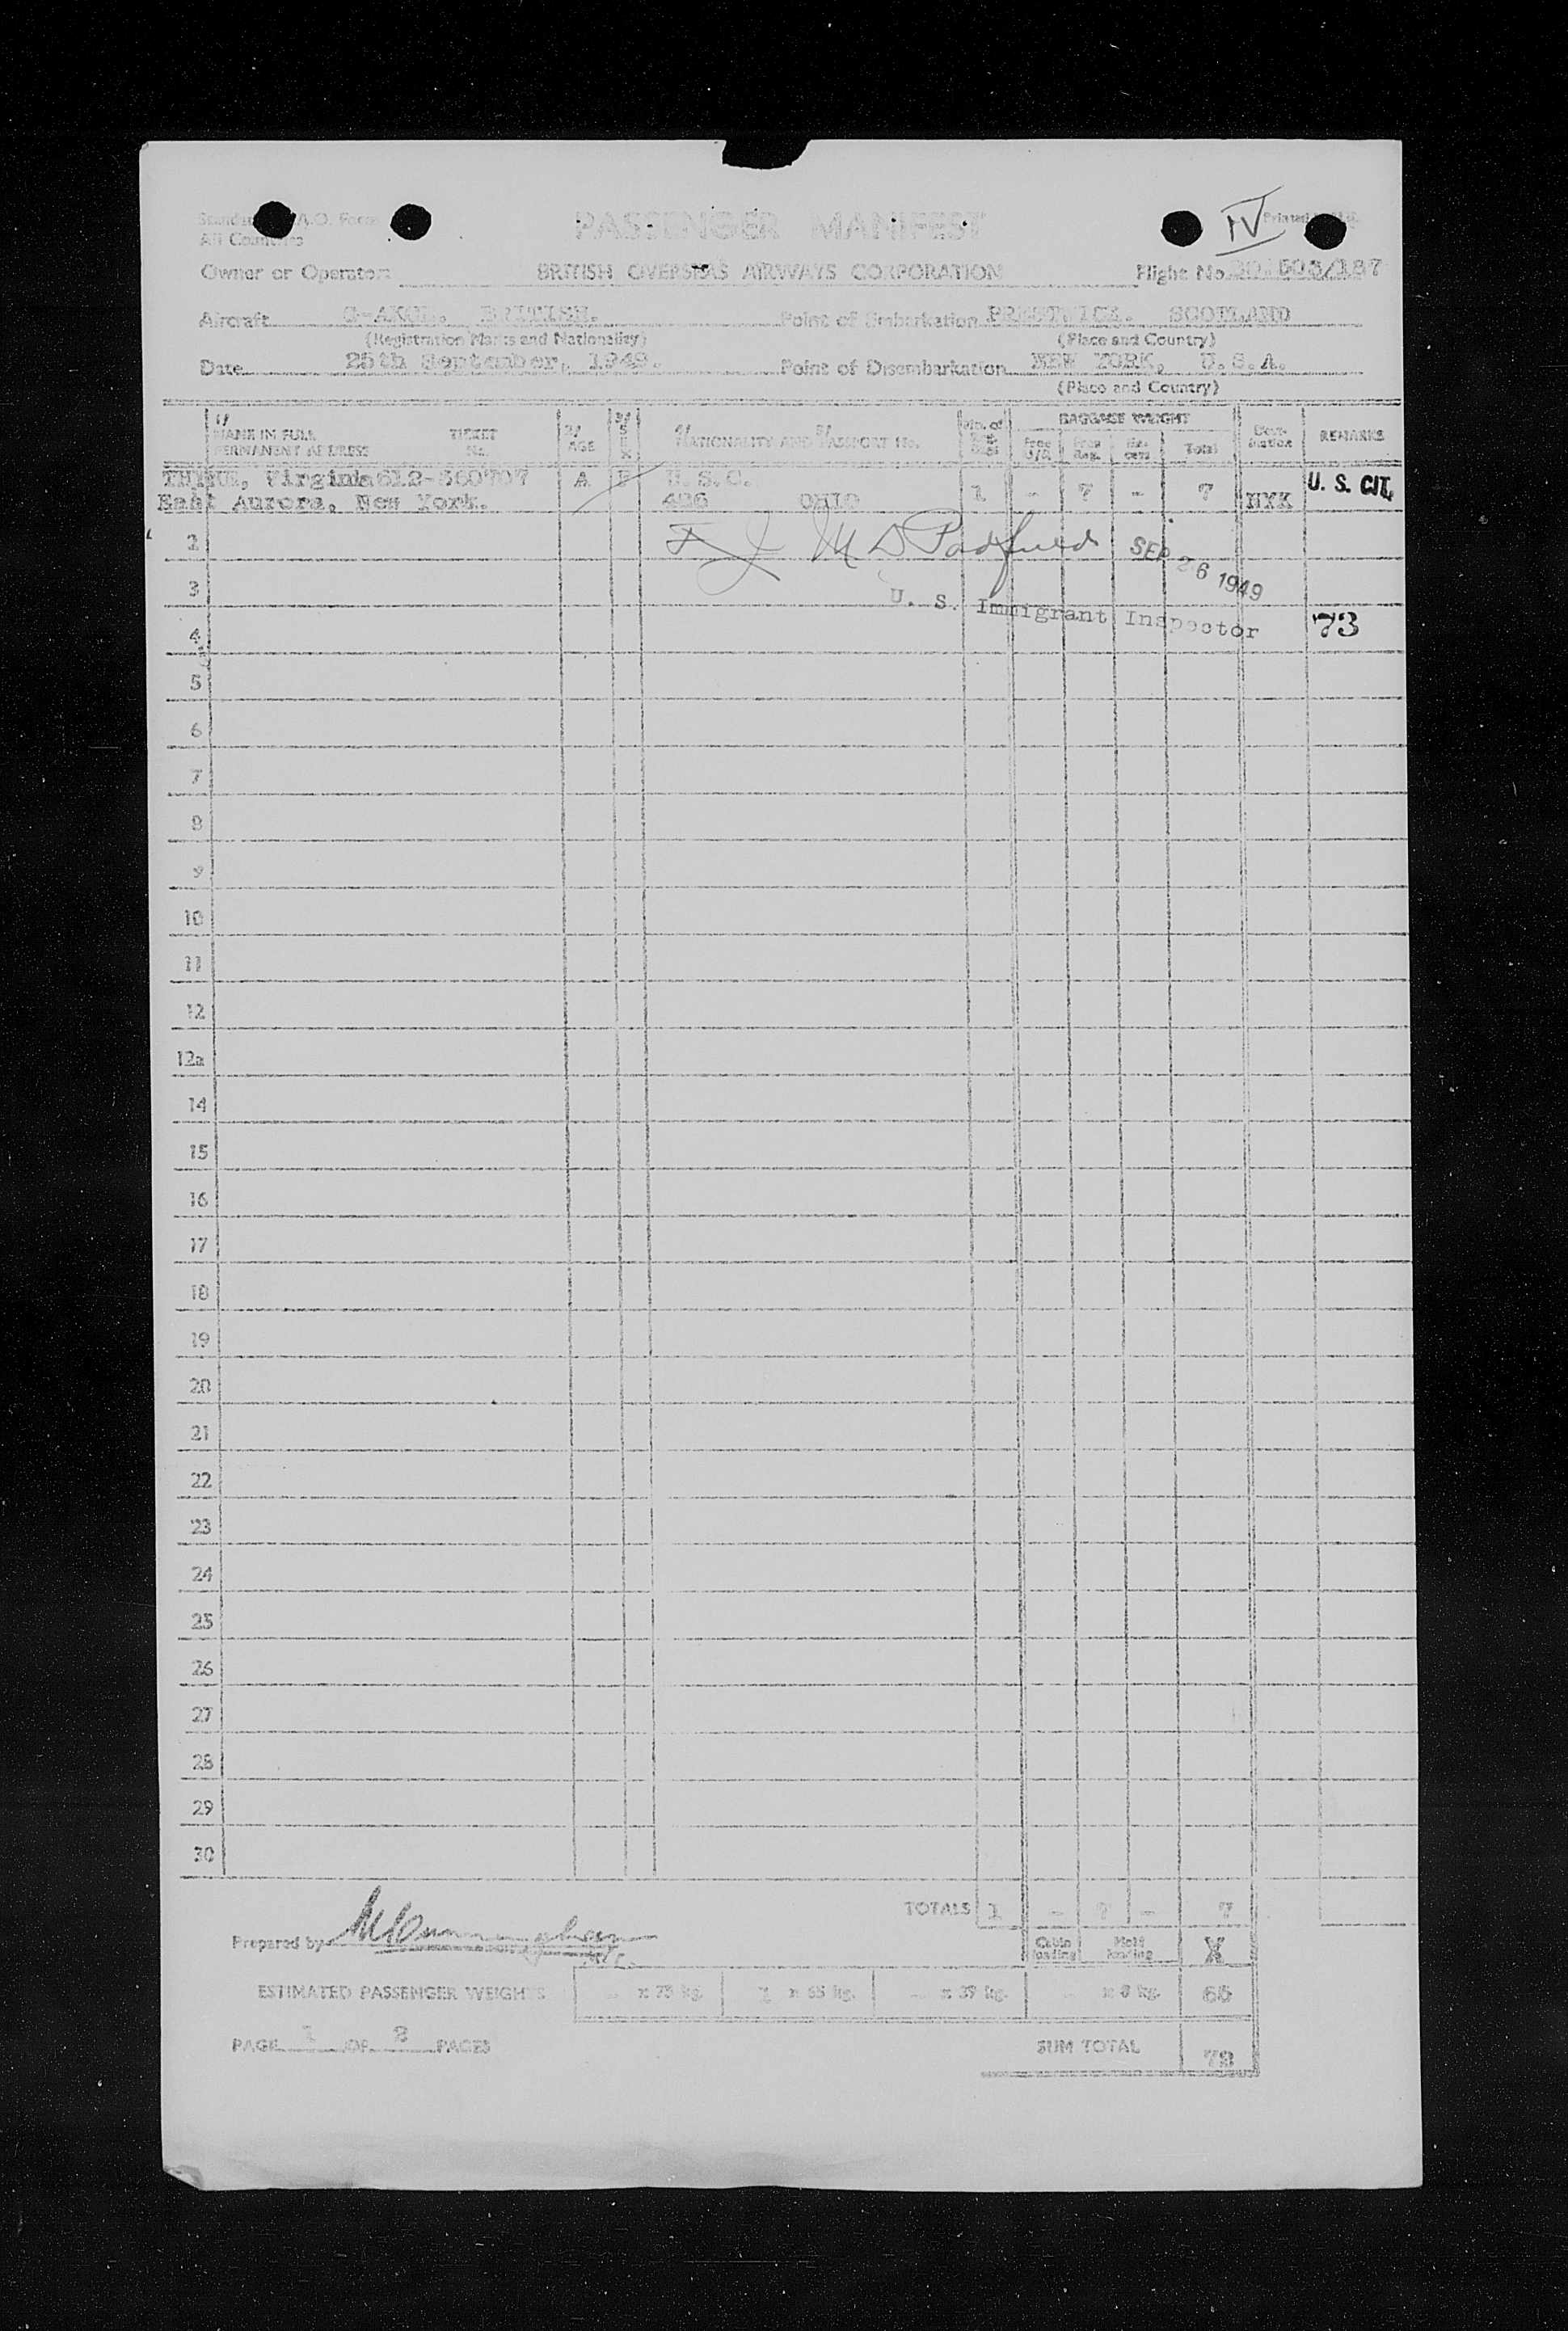 IV
All Countries
PASSENGER MANIFEST
Owner or Operator BRITISH OVERSEAS AIRWAYS CORPORATION Flight No. 503/187
Aircraft BRITISH. Point of Embarkation PRESTWICK. SCOTLAND
(Registration Marks and Nationality) (Place and Country)
Date 25th September, 1949. Point of Disembarkation NEW YORK, U.S.A.
(Place and Country)
BAGGAGE WEIGHT
1/ NAME IN FULL PERMANENT ADDRESS TICKET No. 2/ AGE 3/ SEX 4/ NATIONALITY AND 5/ PASSPORT No. Total Destination REMARKS
Virginia 612-560707 A F U.S.C. U. S. CIT.
East Aurora, New York. 426 OHIO 1 - 7 - 7 NYK
2 SEP 26 1949
3 U. S. Immigrant Inspector
4 73
5
6
7
8
9
10
11
12
12a
14
15
16
17
18
19
20
21
22
23
24
25
26
27
28
29
30
TOTALS 1 - 7 - 7
Prepared by Cabin loading Hold loading X
ESTIMATED PASSENGER WEIGHTS - x 75 kg. 1 x 65 kg. - x 39 kg. - x 8 kg. 65
PAGE 1 OF 2 PAGES SUM TOTAL 72